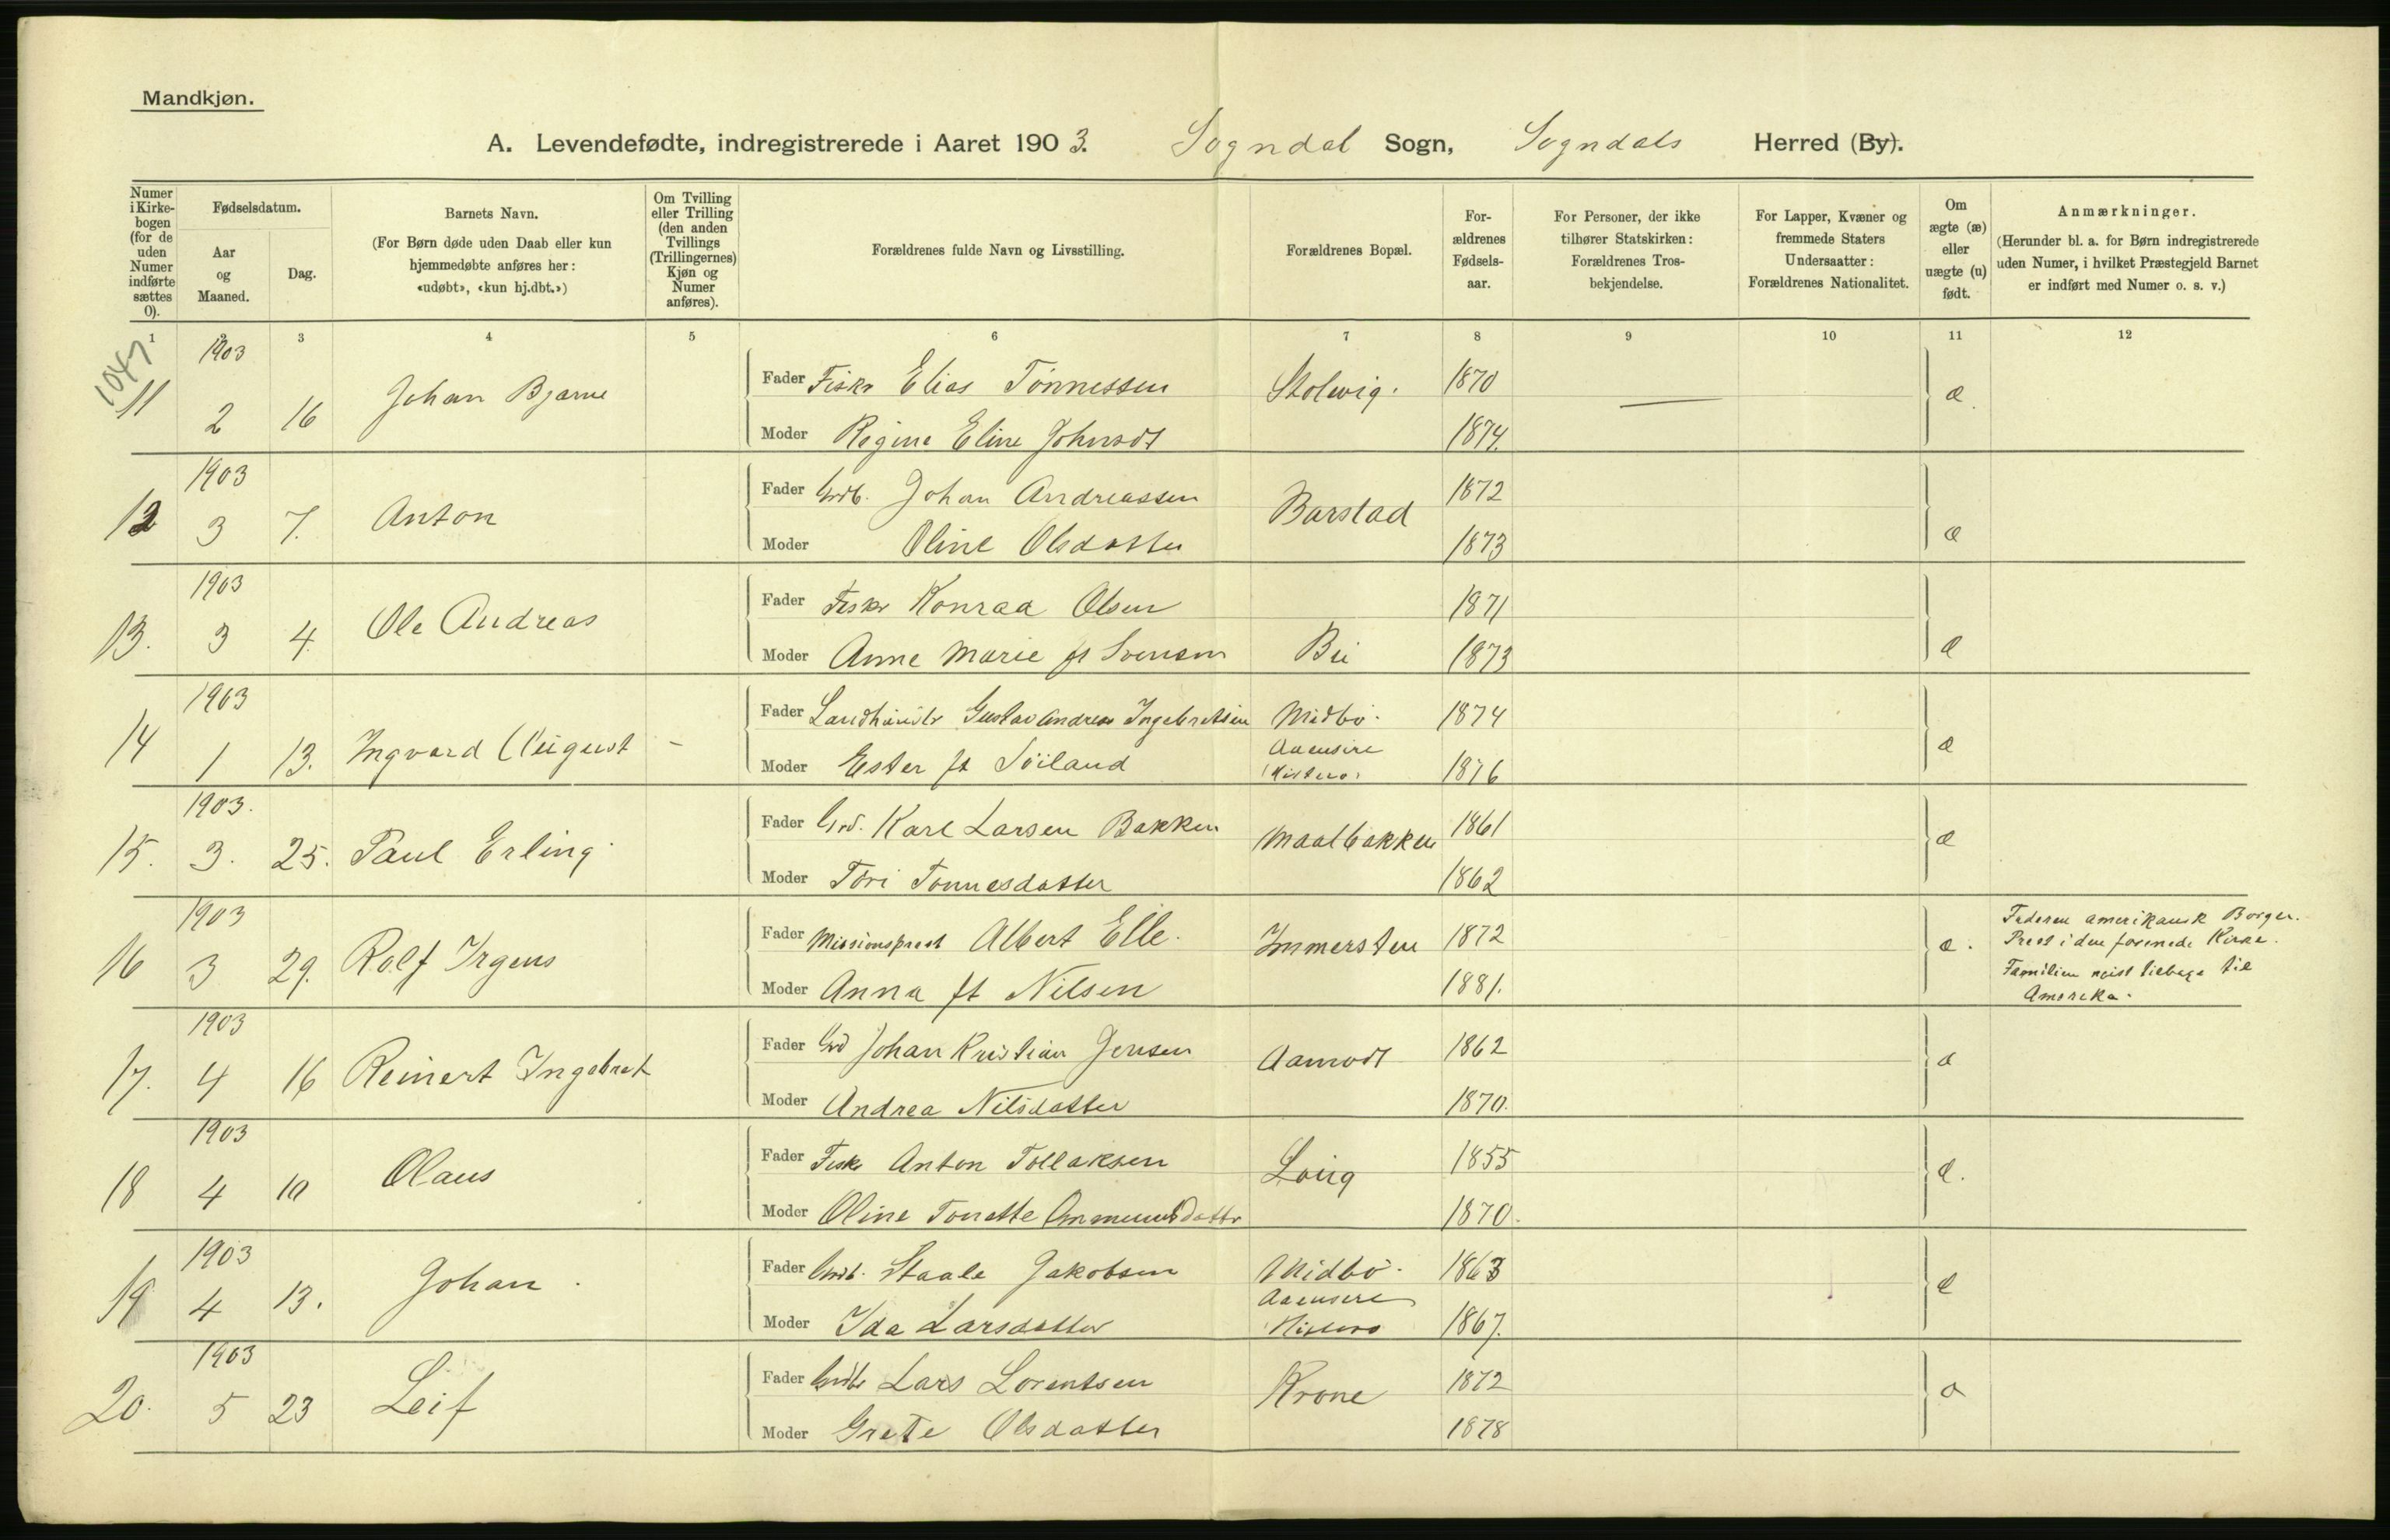 Mandkjøn.
A. Levendefødte, indregistrerede i Aaret 1903. Sogndal Sogn, Sogndals Herred (By).
Numer i Kirke-bogen (for de uden Numer indførte sættes 0).
Fødselsdatum.
Aar og Maaned.
Dag.
Barnets Navn.
(For Børn døde uden Daab eller kun hjemmedøbte anføres her: «udøbt», «kun hj.dbt.»)
Om Tvilling eller Trilling (den anden Tvillings (Trillingernes) Kjøn og Numer anføres).
Forældrenes fulde Navn og Livsstilling.
Forældrenes Bopæl.
For-ældrenes Fødsels-aar.
For Personer, der ikke tilhører Statskirken: Forældrenes Tros-bekjendelse.
For Lapper, Kvæner og fremmede Staters Undersaatter: Forældrenes Nationalitet.
Om ægte (æ) eller uægte (u) født.
Anmærkninger.
(Herunder bl. a. for Børn indregistrerede uden Numer, i hvilket Præstegjeld Barnet er indført med Numer o. s. v.)
1 2 3 4 5 6 7 8 9 10 11 12
1047
1903
11 2 16 Johan Bjarne
Fader Fiskr Elias Tönnessen Stolwig. 1870 æ.
Moder Regine Eline Johnsdt 1874.
1903
12 3 7. Anton
Fader Grdb. Johan Andreassen Barstad 1872 æ
Moder Oline Olsdatter 1873
1903
13. 3 4. Ole Andreas
Fader Fiskr Konrad Olsen 1871
Moder Anne Marie ft Svensen Bü 1873 æ
1903
14 1 13. Ingvard August -
Fader Landhandlr Gustav Andreas Ingebretsen Midbö. 1874 æ
Aaensire
Moder Ester ft Söiland (Histerø) 1876
1903.
15. 3. 25. Paul Erling
Fader Grd. Karl Larsen Bakken Maalbakken 1861 æ
Moder Töri Tönnesdatter 1862
1903
16 3 29. Rolf Irgens
Fader Missionsprest Albert Elle. Immersten 1872 æ.
Moder Anna ft Nilsen 1881.
Faderen amerikansk Borger.
Prest i den forenede Kirke.
Familien reist tilbage til
Amerika.
1903
17. 4 16 Reinert Ingebret
Fader Grd Johan Kristian Jensen Aamodt 1862 æ
Moder Andrea Nilsdatter 1870.
1903
18 4 10 Olaus
Fader Fiskr Anton Tollaksen Löiig 1855 æ.
Moder Oline Tonette Ammundsdattr 1870.
1903
19 4 13. Johan.
Fader Grdb. Staale Jakobsen Midbö. 1863 æ
Aaensire
Moder Ida Larsdatter Histerø 1867.
1903
20. 5 23 Leif
Fader Grdbr Lars Lorentsen Krone 1872 æ
Moder Grete Olsdatter 1878